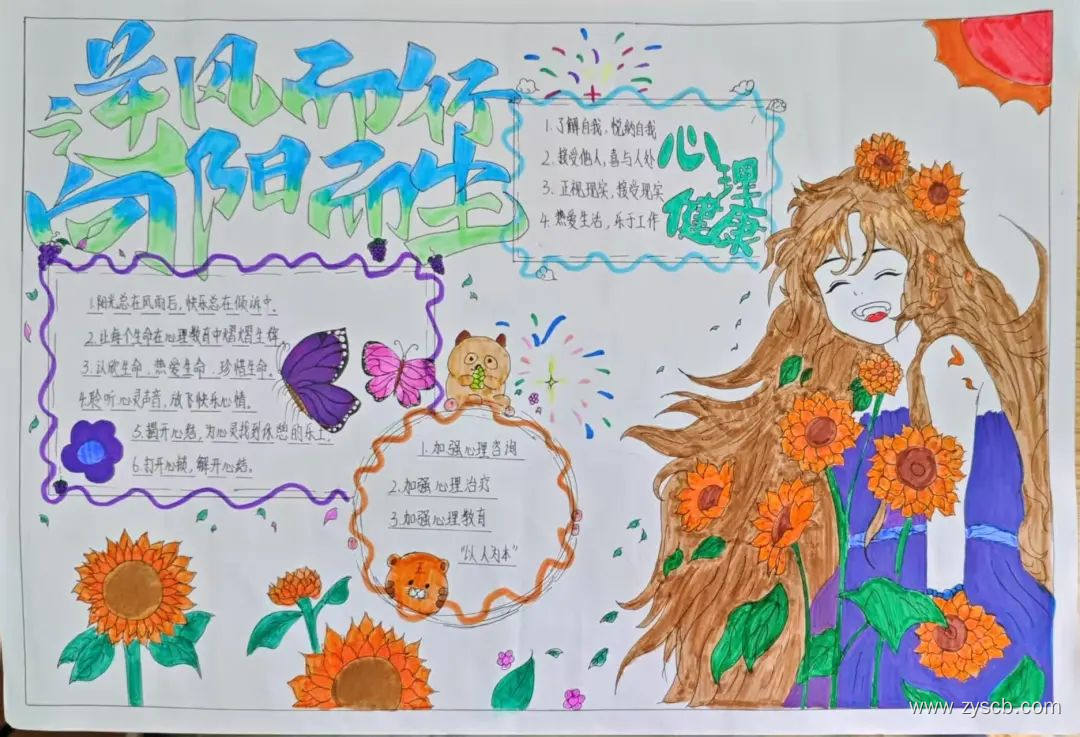 逆风而行
向阳而生
1.了解自我,悦纳自我
2.接受他人,喜与人处
3.正视现实,接受现实
4.热爱生活,乐于工作
心理
健康
1.阳光总在风雨后,快乐总在倾诉中。
2.让每个生命在心理教育中熠熠生辉
3.认欣生命、热爱生命、珍惜生命。
4.聆听心灵声音,放飞快乐心情。
5.揭开心结,为心灵找到休憩的乐土。
6.打开心锁,解开心结。
1.加强心理咨询
2.加强心理治疗
3.加强心理教育
"以人为本"
www.zyscb.com